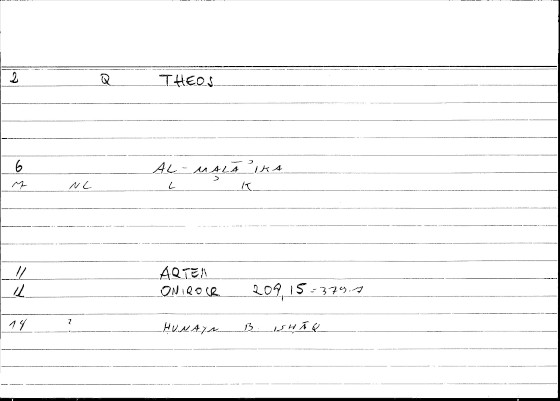 2 Q THEOS
6 AL-MALĀʾIKA
M NL L ʾ K
11 ARTEM
12 ONIROCR 209,15 = 379,1
14 ? ḤUNAYN B ISḤĀQ